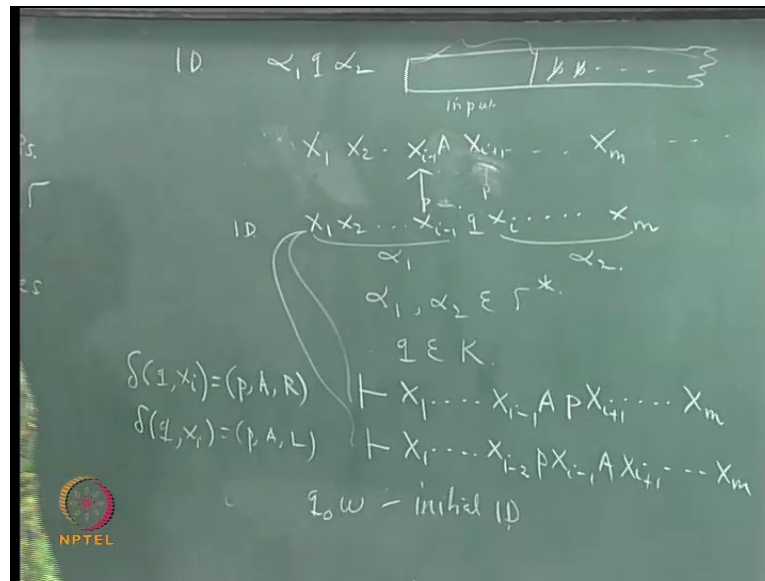 ID. α₁ q α₂ ƀ ƀ . . .
input
ps. X₁ X₂ . Xᵢ₋₁ A Xᵢ₊₁ . . . Xₘ . . .
Γ p p
ID. X₁ X₂ . . . Xᵢ₋₁ q Xᵢ . . . . . Xₘ
es α₁ α₂.
α₁, α₂ ε Γ*.
q ε K.
δ(q, Xᵢ) = (p, A, R) ⊢ X₁ . . . . Xᵢ₋₁ A p Xᵢ₊₁ . . . . Xₘ
δ(q, Xᵢ) = (p, A, L) ⊢ X₁ . . . . Xᵢ₋₂ p Xᵢ₋₁ A Xᵢ₊₁ . . . Xₘ
q₀ w – initial ID
NPTEL